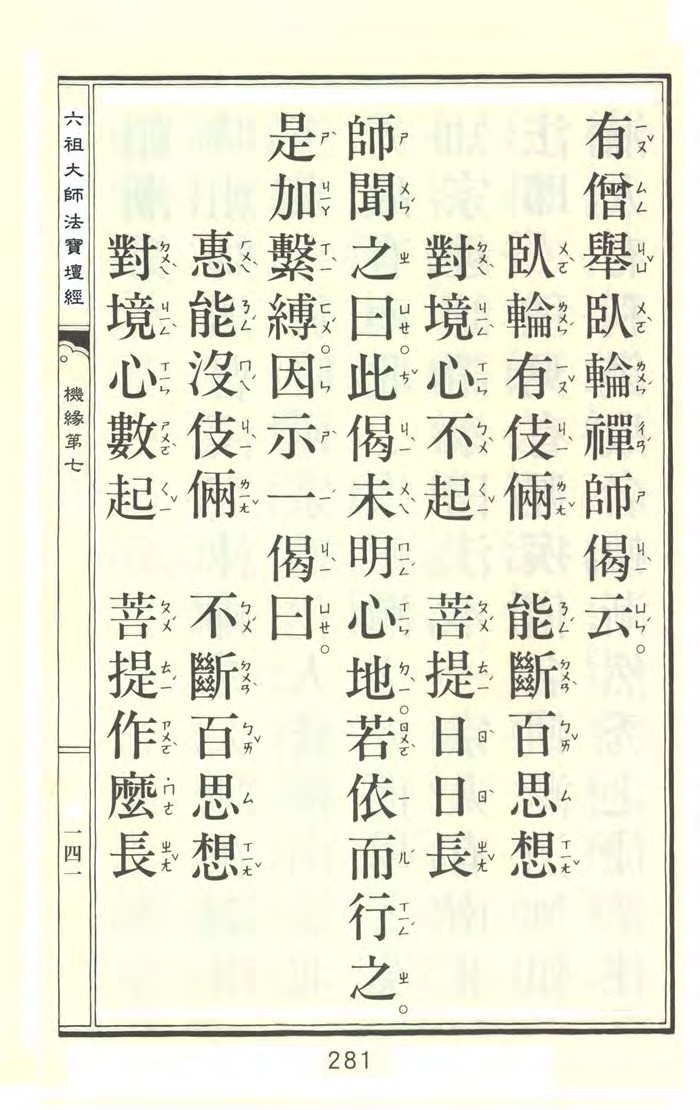 有僧舉臥輪禪師偈云。
臥輪有伎倆 能斷百思想
對境心不起 菩提日日長
師聞之曰。此偈未明心地。若依而行之。
是加繫縛。因示一偈曰。
惠能沒伎倆 不斷百思想
對境心數起 菩提作麼長
六祖大師法寶壇經
機緣第七
一四一
281